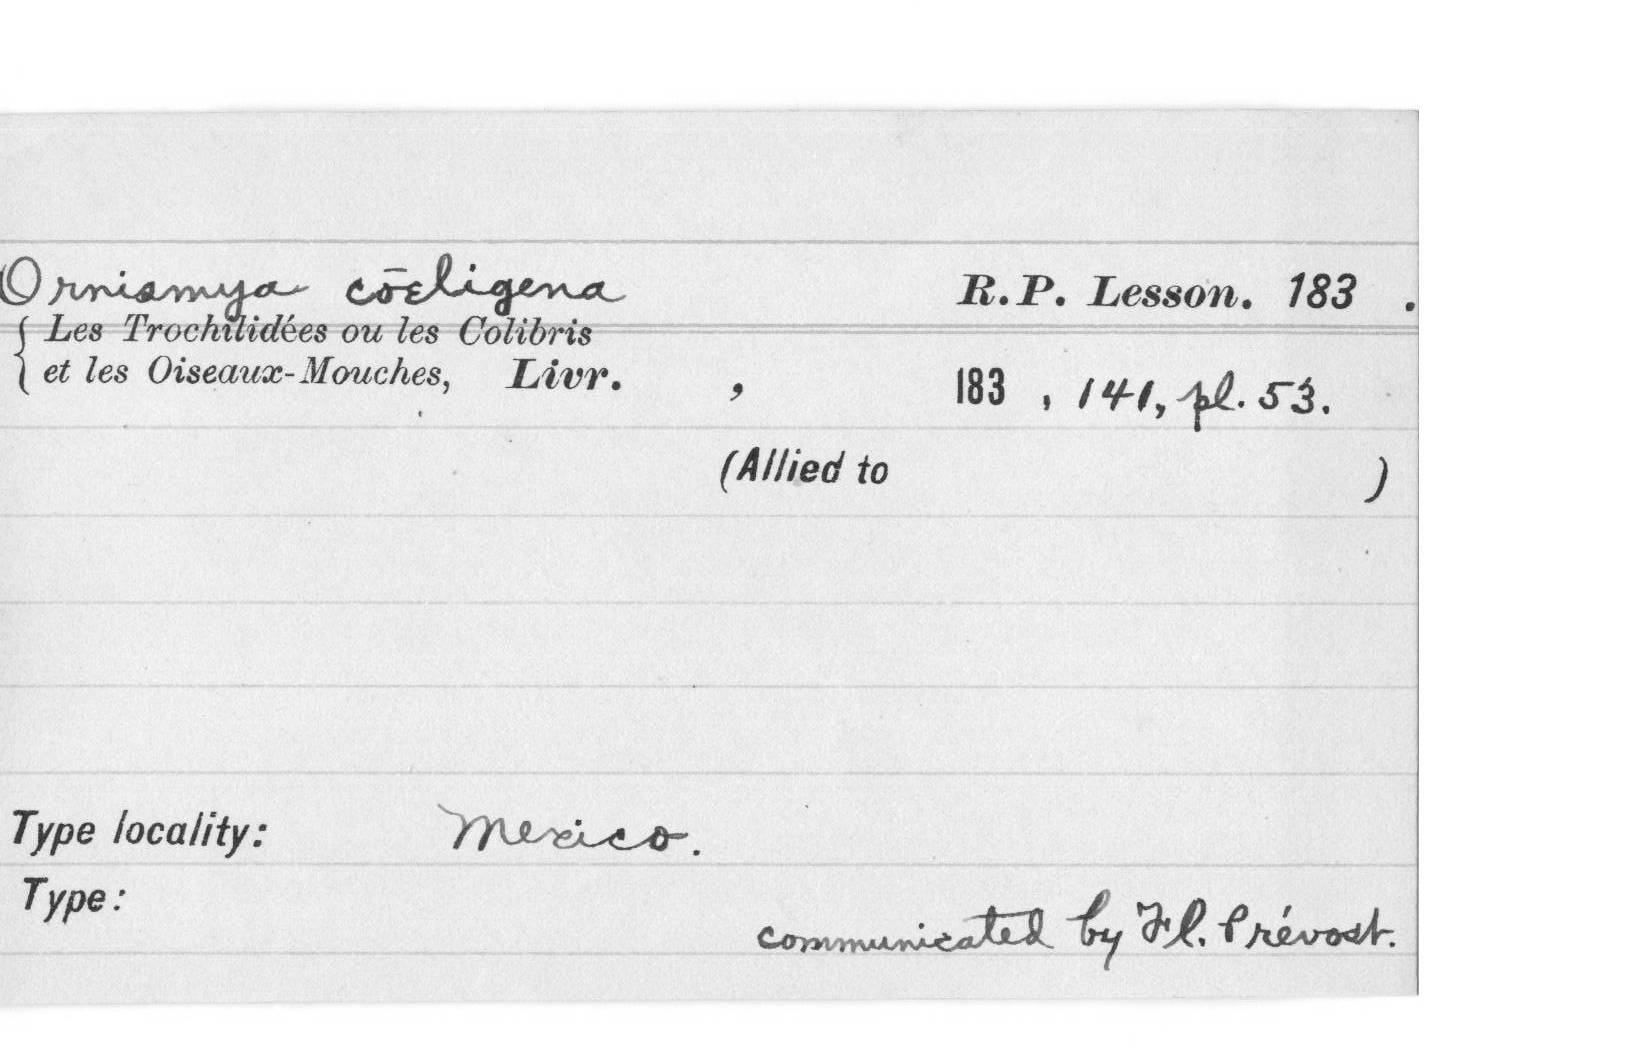 Ornismya cōeligena R.P. Lesson. 183 .
{ Les Trochilidées ou les Colibris
et les Oiseaux-Mouches, Livr. , 183 , 141, pl. 53.
(Allied to )
Type locality: Mexico.
Type:
communicated by Fl. Prévost.